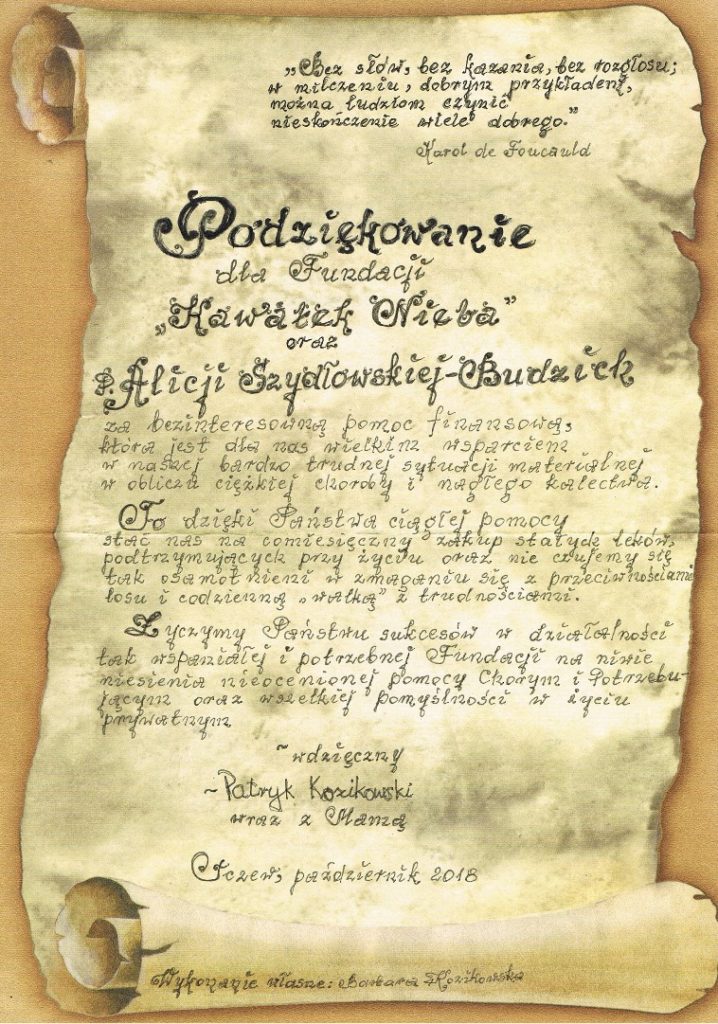 „Bez słów, bez kazania, bez rozgłosu;
w milczeniu, dobrym przykładem,
można ludziom czynić
nieskończenie wiele dobrego.”
Karol de Foucauld
Podziękowanie
dla Fundacji
„Kawałek Nieba”
oraz
P. Alicji Szydłowskiej-Budzich
za bezinteresowną pomoc finansową,
która jest dla nas wielkim wsparciem
w naszej bardzo trudnej sytuacji materialnej
w obliczu ciężkiej choroby i nagłego kalectwa.
To dzięki Państwa ciągłej pomocy
stać nas na comiesięczny zakup stałych leków,
podtrzymujących przy życiu oraz nie czujemy się
tak osamotnieni w zmaganiu się z przeciwnościami
losu i codzienną „walką” z trudnościami.
Życzymy Państwu sukcesów w działalności
tak wspaniałej i potrzebnej Fundacji na niwie
niesienia nieocenionej pomocy Chorym i Potrzebu-
jącym oraz wszelkiej pomyślności w życiu
prywatnym
~ wdzięczny
~ Patryk Kozikowski
wraz z Mamą
Tczew, październik 2018
Wykonanie własne: Barbara Kozikowska